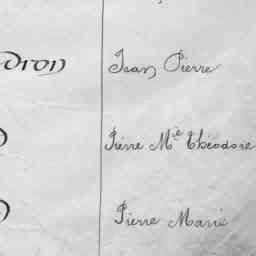 dron Jean Pierre
Pierre Mie Théodore
Pierre Marie